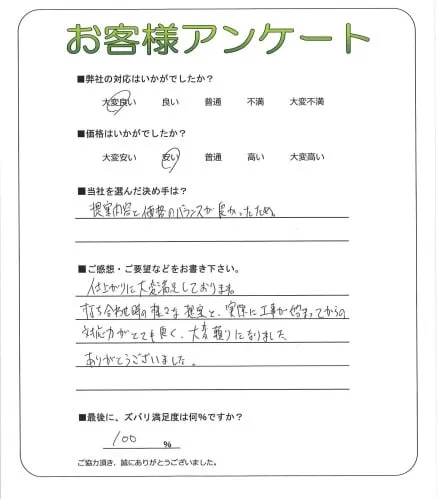 お客様アンケート
■弊社の対応はいかがでしたか?
大変良い 良い 普通 不満 大変不満
■価格はいかがでしたか?
大変安い 安い 普通 高い 大変高い
■当社を選んだ決め手は?
提案内容と価格のバランスが良かったため。
■ご感想・ご要望などをお書き下さい。
仕上がりに大変満足しております。
打ち合わせ時の様々な提案と、実際に工事が始まってからの
対応力がとても良く、大変頼りになりました。
ありがとうございました。
■最後に、ズバリ満足度は何%ですか?
100 %
ご協力頂き、誠にありがとうございました。